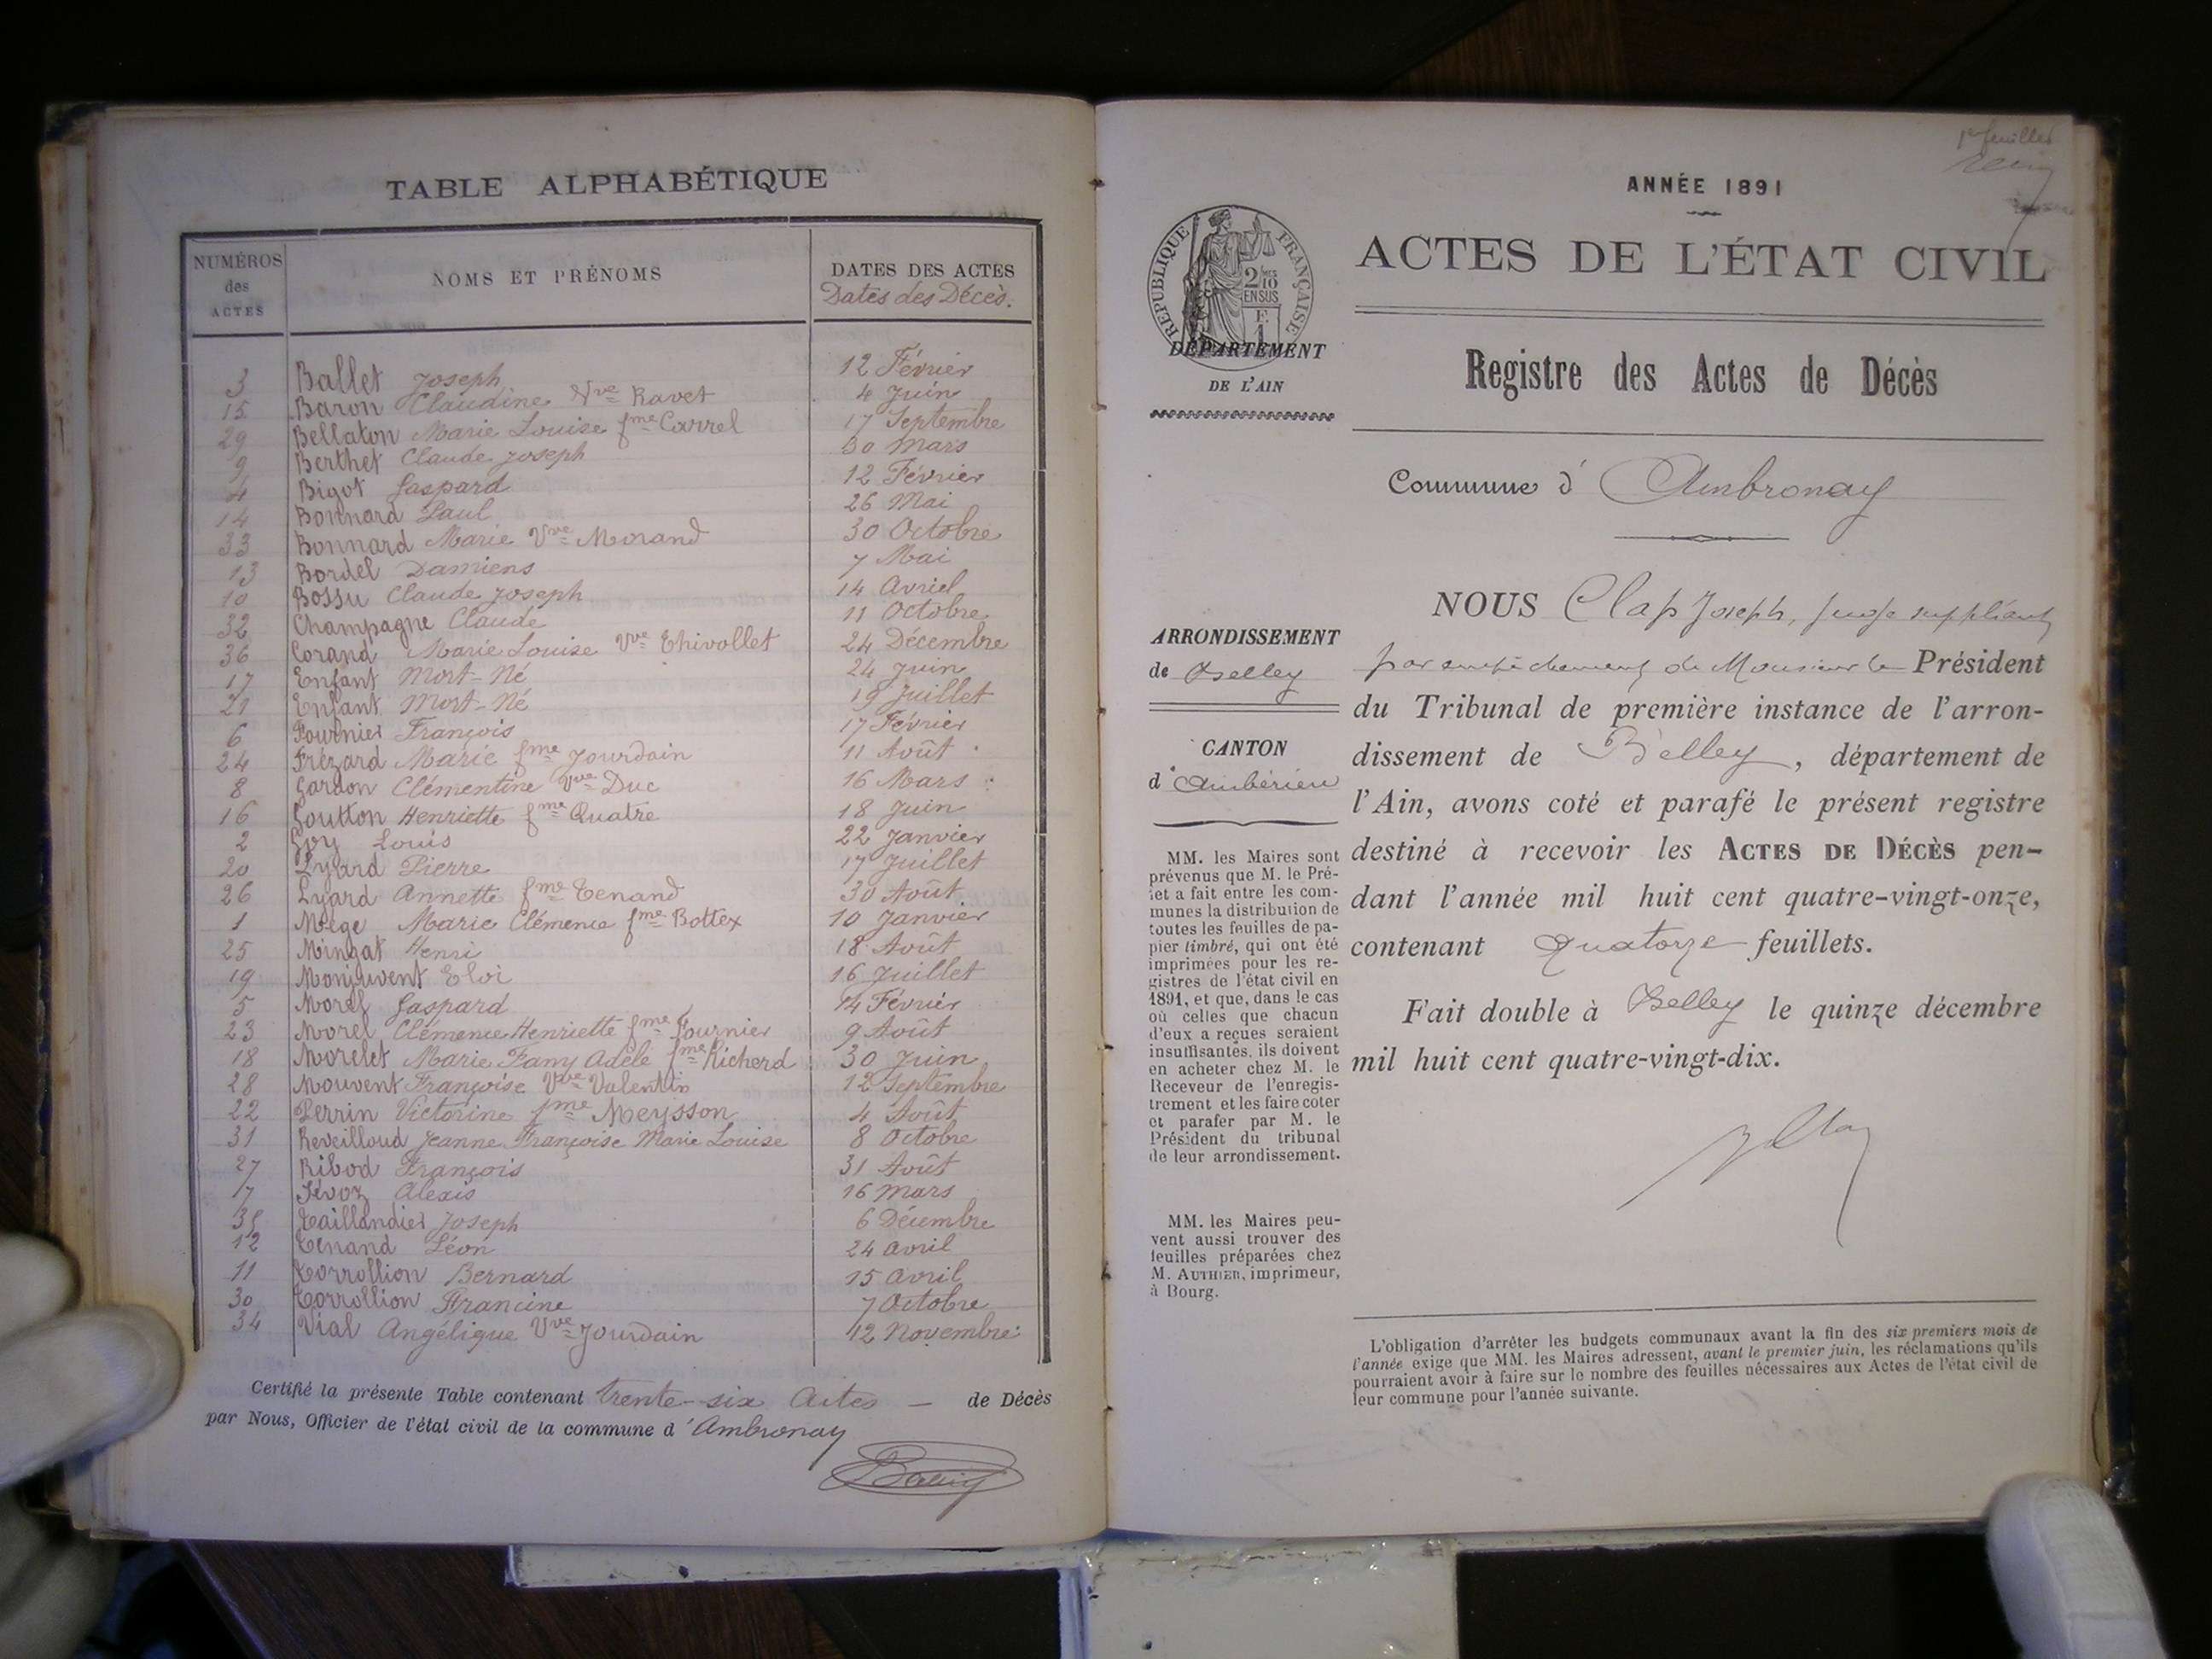 TABLE ALPHABÉTIQUE
NUMÉROS des ACTES
NOMS ET PRÉNOMS
DATES DES ACTES
Dates des Décès.
3 Ballet Joseph 12 Février
15 Baron Claudine Vve Ravet 4 Juin
29 Bellaton Marie Louise fme Carrel 17 Septembre
9 Berthet Claude Joseph 30 Mars
4 Bigot Gaspard 12 Février
14 Bonnard Paul 26 Mai
33 Bonnard Marie Vve Morand 30 Octobre
13 Bordel Damiens 7 Mai
10 Bossu Claude Joseph 14 Avriel
32 Champagne Claude 11 Octobre
36 Corand Marie Louise Vve Thivollet 24 Décembre
17 Enfant Mort-Né 24 Juin
21 Enfant Mort-Né 19 Juillet
6 Fournier François 17 Février
24 Frézard Marie fme Jourdain 11 Août
8 Gardon Clémentine Vve Duc 16 Mars
16 Goutton Henriette fme Quatre 18 Juin
2 Goy Louis 22 Janvier
20 Lyard Pierre 17 Juillet
26 Lyard Annette fme Tenand 30 Août
1 Mège Marie Clémence fme Bottex 10 Janvier
25 Mingat Henri 18 Août
19 Monjuvent Eloi 16 Juillet
5 Morel Gaspard 14 Février
23 Morel Clémence Henriette fme Fournier 9 Août
18 Morelet Marie Fany Adèle fme Richerd 30 Juin
28 Mouvent Françoise Vve Valentin 12 Septembre
22 Perrin Victorine fme Meysson 4 Août
31 Reveilloud Jeanne Françoise Marie Louise 8 Octobre
27 Ribod François 31 Août
17 Sévoz Alexis 16 Mars
35 Taillandier Joseph 6 Décembre
12 Tenand Léon 24 Avril
11 Torrollion Bernard 15 Avril
30 Torrollion Francine 7 Octobre
34 Vial Angélique Vve Jourdain 12 Novembre
Certifié la présente Table contenant trente-six Actes — de Décès
par Nous, Officier de l'état civil de la commune d'Ambronay
1er feuillet
ANNÉE 1891
ACTES DE L'ÉTAT CIVIL
RÉPUBLIQUE FRANÇAISE
2/10 EN SUS
F. 1
DÉPARTEMENT
DE L'AIN
Registre des Actes de Décès
Commune d'Ambronay
ARRONDISSEMENT
de Belley
CANTON
d'Ambérieu
MM. les Maires sont
prévenus que M. le Pré-
fet a fait entre les com-
munes la distribution de
toutes les feuilles de pa-
pier timbré, qui ont été
imprimées pour les re-
gistres de l'état civil en
1891, et que, dans le cas
où celles que chacun
d'eux a reçues seraient
insuffisantes, ils doivent
en acheter chez M. le
Receveur de l'enregis-
trement et les faire coter
et parafer par M. le
Président du tribunal
de leur arrondissement.
MM. les Maires peu-
vent aussi trouver des
feuilles préparées chez
M. AUTHIER, imprimeur,
à Bourg.
NOUS Clap Joseph, Juge suppléant
par empêchement de Monsieur le Président
du Tribunal de première instance de l'arron-
dissement de Belley, département de
l'Ain, avons coté et parafé le présent registre
destiné à recevoir les ACTES DE DÉCÈS pen-
dant l'année mil huit cent quatre-vingt-onze,
contenant Quatorze feuillets.
Fait double à Belley le quinze décembre
mil huit cent quatre-vingt-dix.
L'obligation d'arrêter les budgets communaux avant la fin des six premiers mois de
l'année exige que MM. les Maires adressent, avant le premier juin, les réclamations qu'ils
pourraient avoir à faire sur le nombre des feuilles nécessaires aux Actes de l'état civil de
leur commune pour l'année suivante.